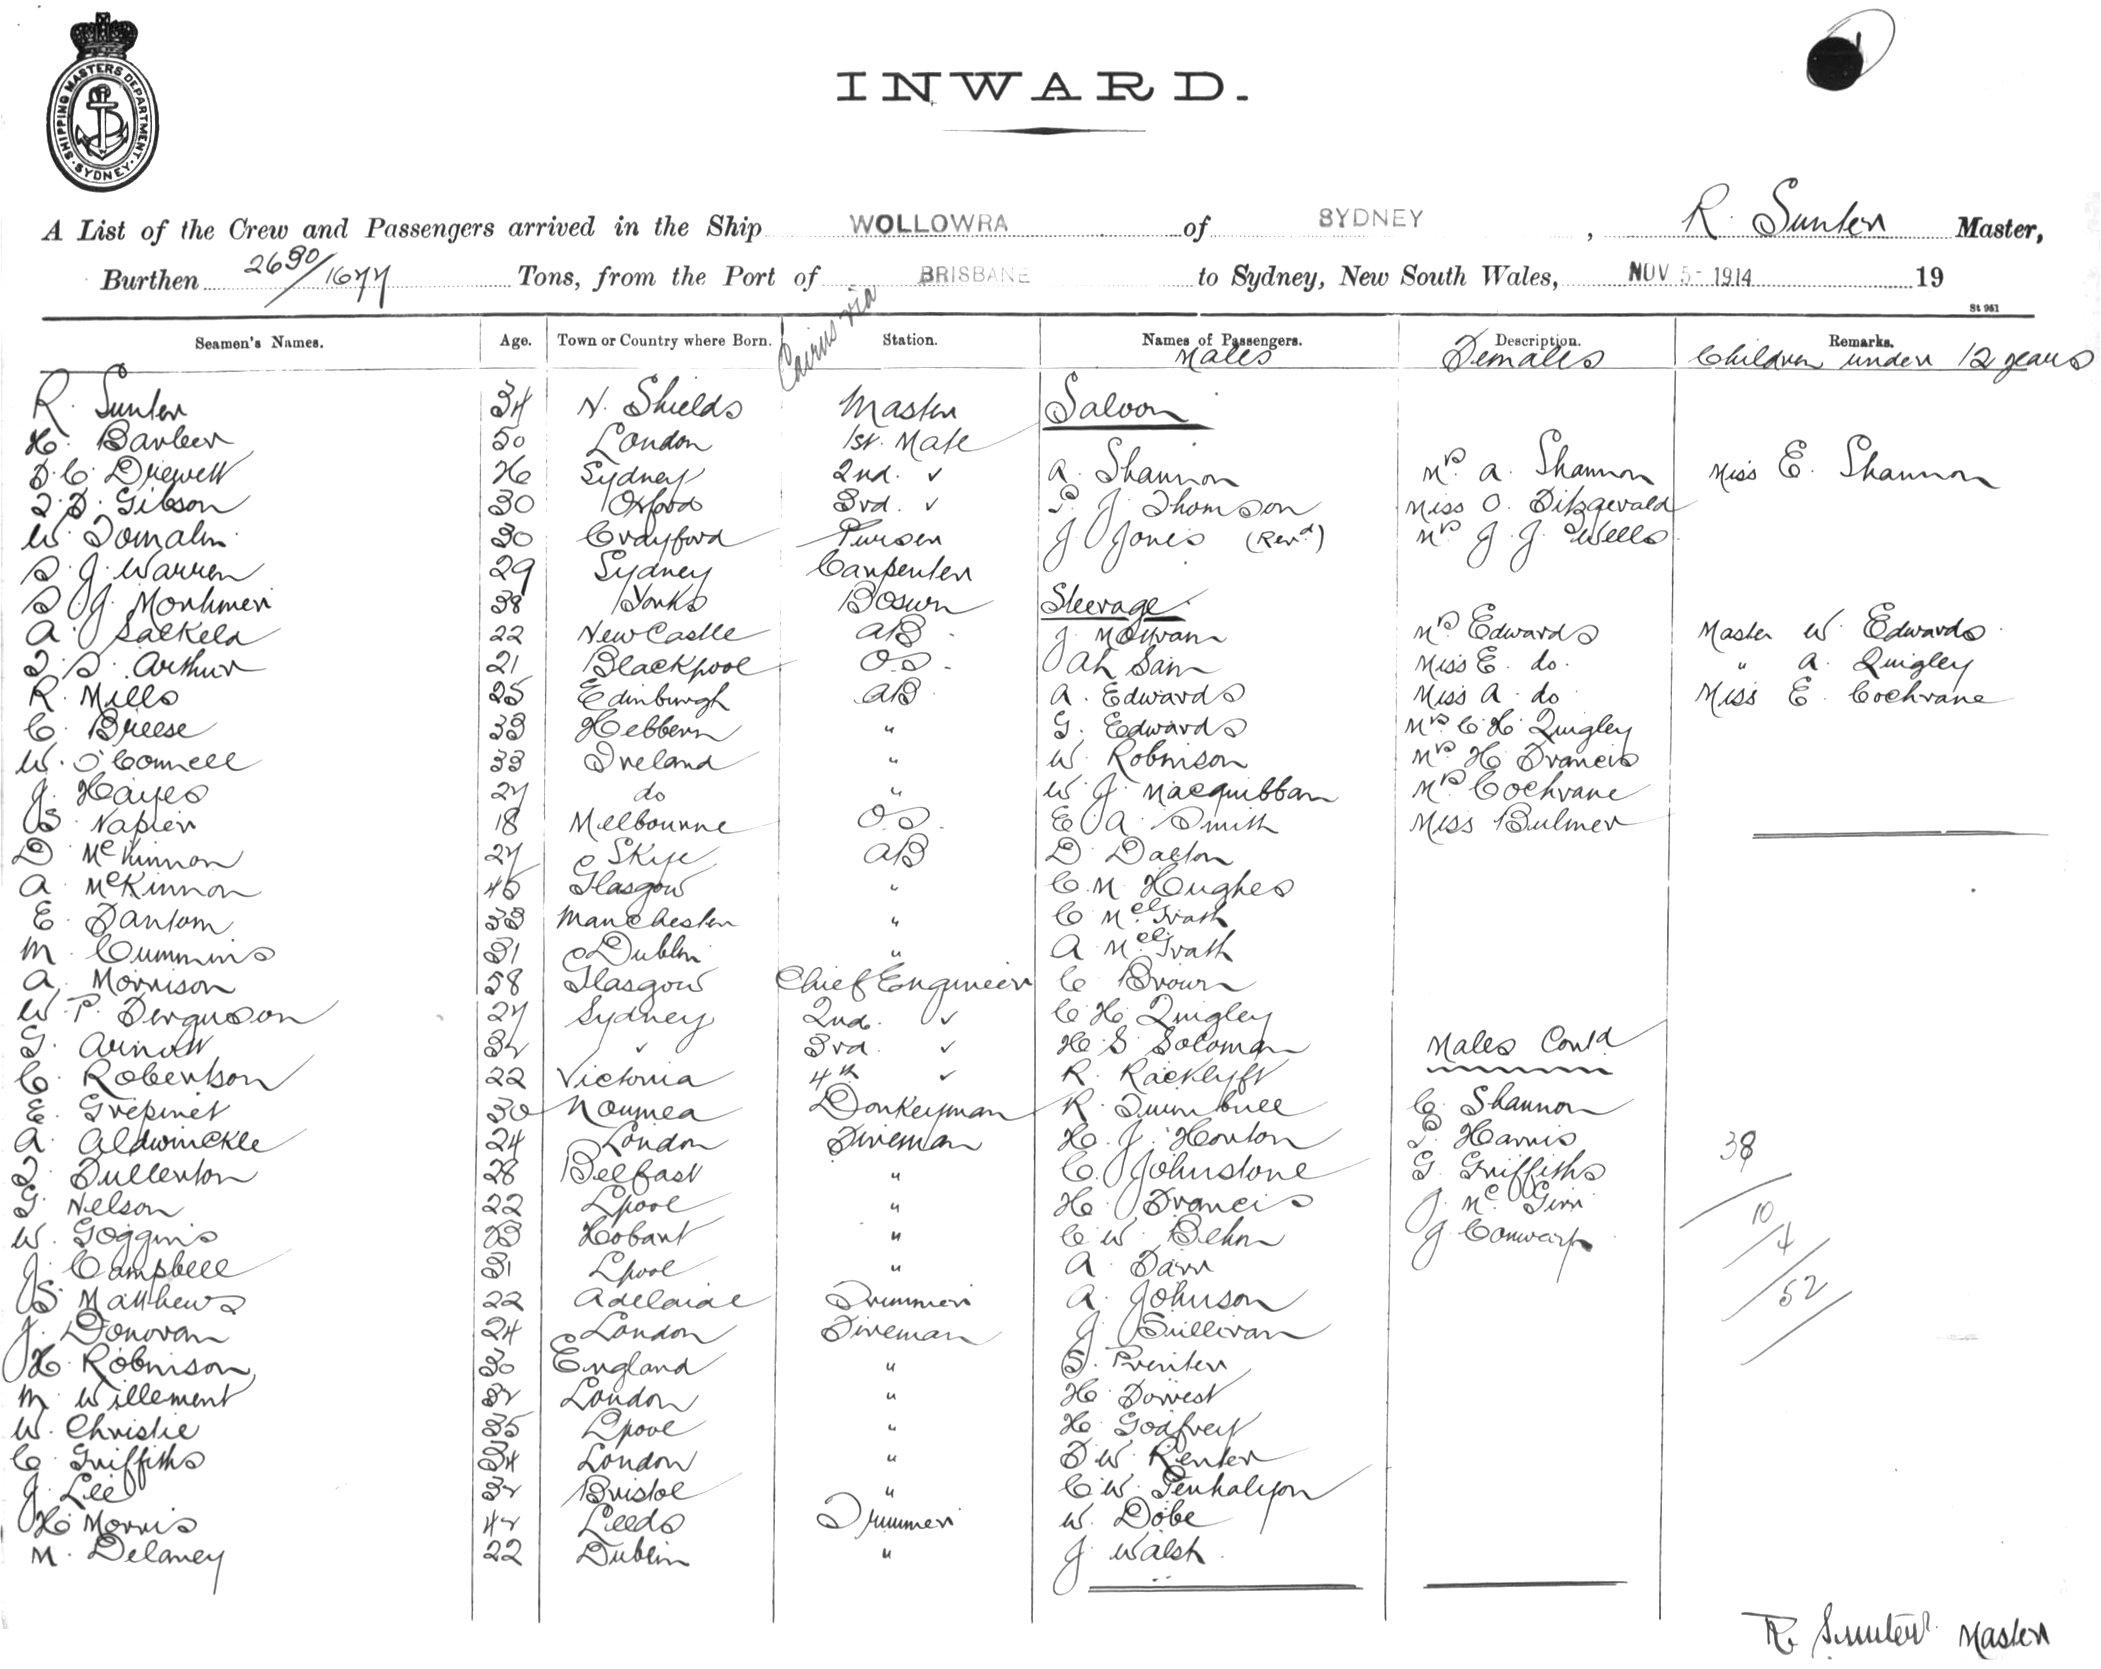 SHIPPING MASTERS DEPARTMENT. SYDNEY
INWARD.
A List of the Crew and Passengers arrived in the Ship WOLLOWRA of SYDNEY, R. Sunter Master,
Burthen 2630/1677 Tons, from the Port of BRISBANE to Sydney, New South Wales, NOV 5- 1914 19
Cairns via
St 951
Seamen's Names. Age. Town or Country where Born. Station. Names of Passengers. Description. Remarks.
Males Females Children under 12 years
R. Sunter 34 N. Shields Master Saloon
H. Barber 50 London 1st. Mate
F. C. Drewett 26 Sydney 2nd. ✓ A. Shannon Mrs. A. Shannon Miss E. Shannon
T. F. Gibson 30 Oxford 3rd. ✓ P. J. Thomson Miss O. Fitzgerald
W. Tomalin 30 Crayford Purser J Jones (Revd) Mrs J. J. Wells
S. J. Warren 29 Sydney Carpenter
S. J. Mortimer 38 Yorks Boswn Steerage
A. Salkeld 22 NewCastle AB J. McGivan Mrs Edwards Master W. Edwards
T. S. Arthur 21 Blackpool OS Ah Sam Miss E. do. " A. Quigley
R. Mills 25 Edinburgh AB A. Edwards Miss A. do Miss E. Cochrane
C. Breese 33 Hebbern " G. Edwards Mrs C. H. Quigley
W. O'Connell 33 Ireland " W. Robinson Mrs H. Francis
J. Hayes 27 do " W. J. Macquibban Mrs Cochrane
S. Napier 18 Melbourne OS E. A. Smith Miss Bulmer
D. McKinnon 27 Skye AB D. Dalton
A. McKinnon 45 Glasgow " C. M. Hughes
E. Fantom 33 Manchester " C McGrath
M. Cummins 31 Dublin " A McGrath
A. Morrison 58 Glasgow Chief Engineer C Brown
W. P. Ferguson 27 Sydney 2nd. ✓ C. H. Quigley
G. Arnott 32 ✓ 3rd ✓ H. S. Solomon Males Contd
C. Robertson 22 Victoria 4th ✓ R. Racklyft
E. Grepinet 30 Noumea Donkeyman R. Turnbull C. Shannon
A. Aldwinckle 24 London Fireman H. J. Horton P. Harris
T. Fullerton 28 Belfast " C. Johnstone G. Griffiths
G. Nelson 22 Lpool " H. Francis J. McGinn
W. Goggins 23 Hobart " C. W. Behn J Conway
J. Campbell 31 Lpool " A. Farr
S. Matthews 22 Adelaide Trimmer A. Johnson
J. Donovan 24 London Fireman J Sullivan
H. Robinson 30 England " S. Printer
M. Willement 32 London " H. Forrest
W. Christie 35 Lpool " H. Godfrey
C. Griffiths 34 London " F. W. Renter
J. Lee 32 Bristol " C. W. Penhalyon
H. Morris 42 Leeds Trimmer W. Dobe
M. Delaney 22 Dublin " J Walsh
38
10
4
52
R. Sunter Master